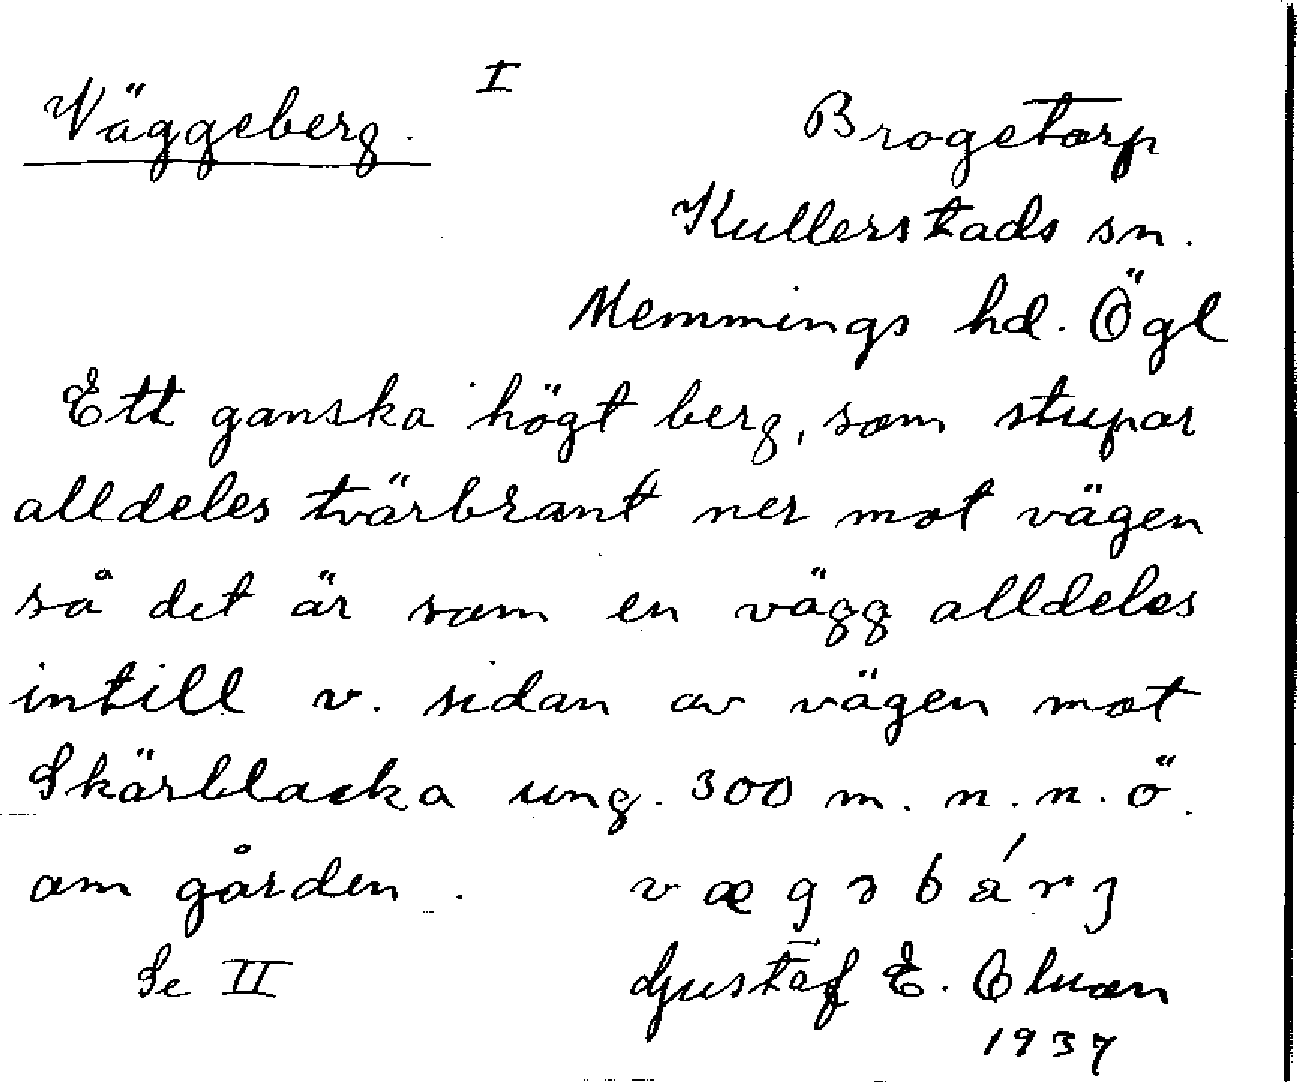 Väggeberg. I
Brogetorp
Kullerstads sn.
Memmings hd. Ögl
Ett ganska högt berg, som stupar
alldeles tvärbrant ner mot vägen
så det är som en vägg alldeles
intill v. sidan av vägen mot
Skärblacka ung. 300 m. n. n. ö.
om gården.
Se II
Gustaf E.
1937